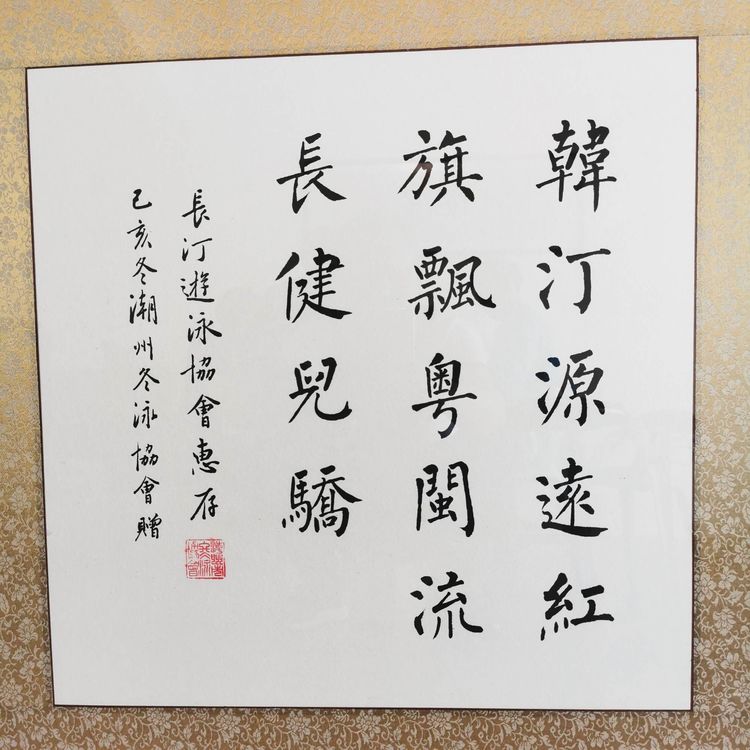 韓汀源遠紅
旗飄粵閩流
長健兒驕
長汀遊泳協會惠存
己亥冬潮州冬泳協會贈